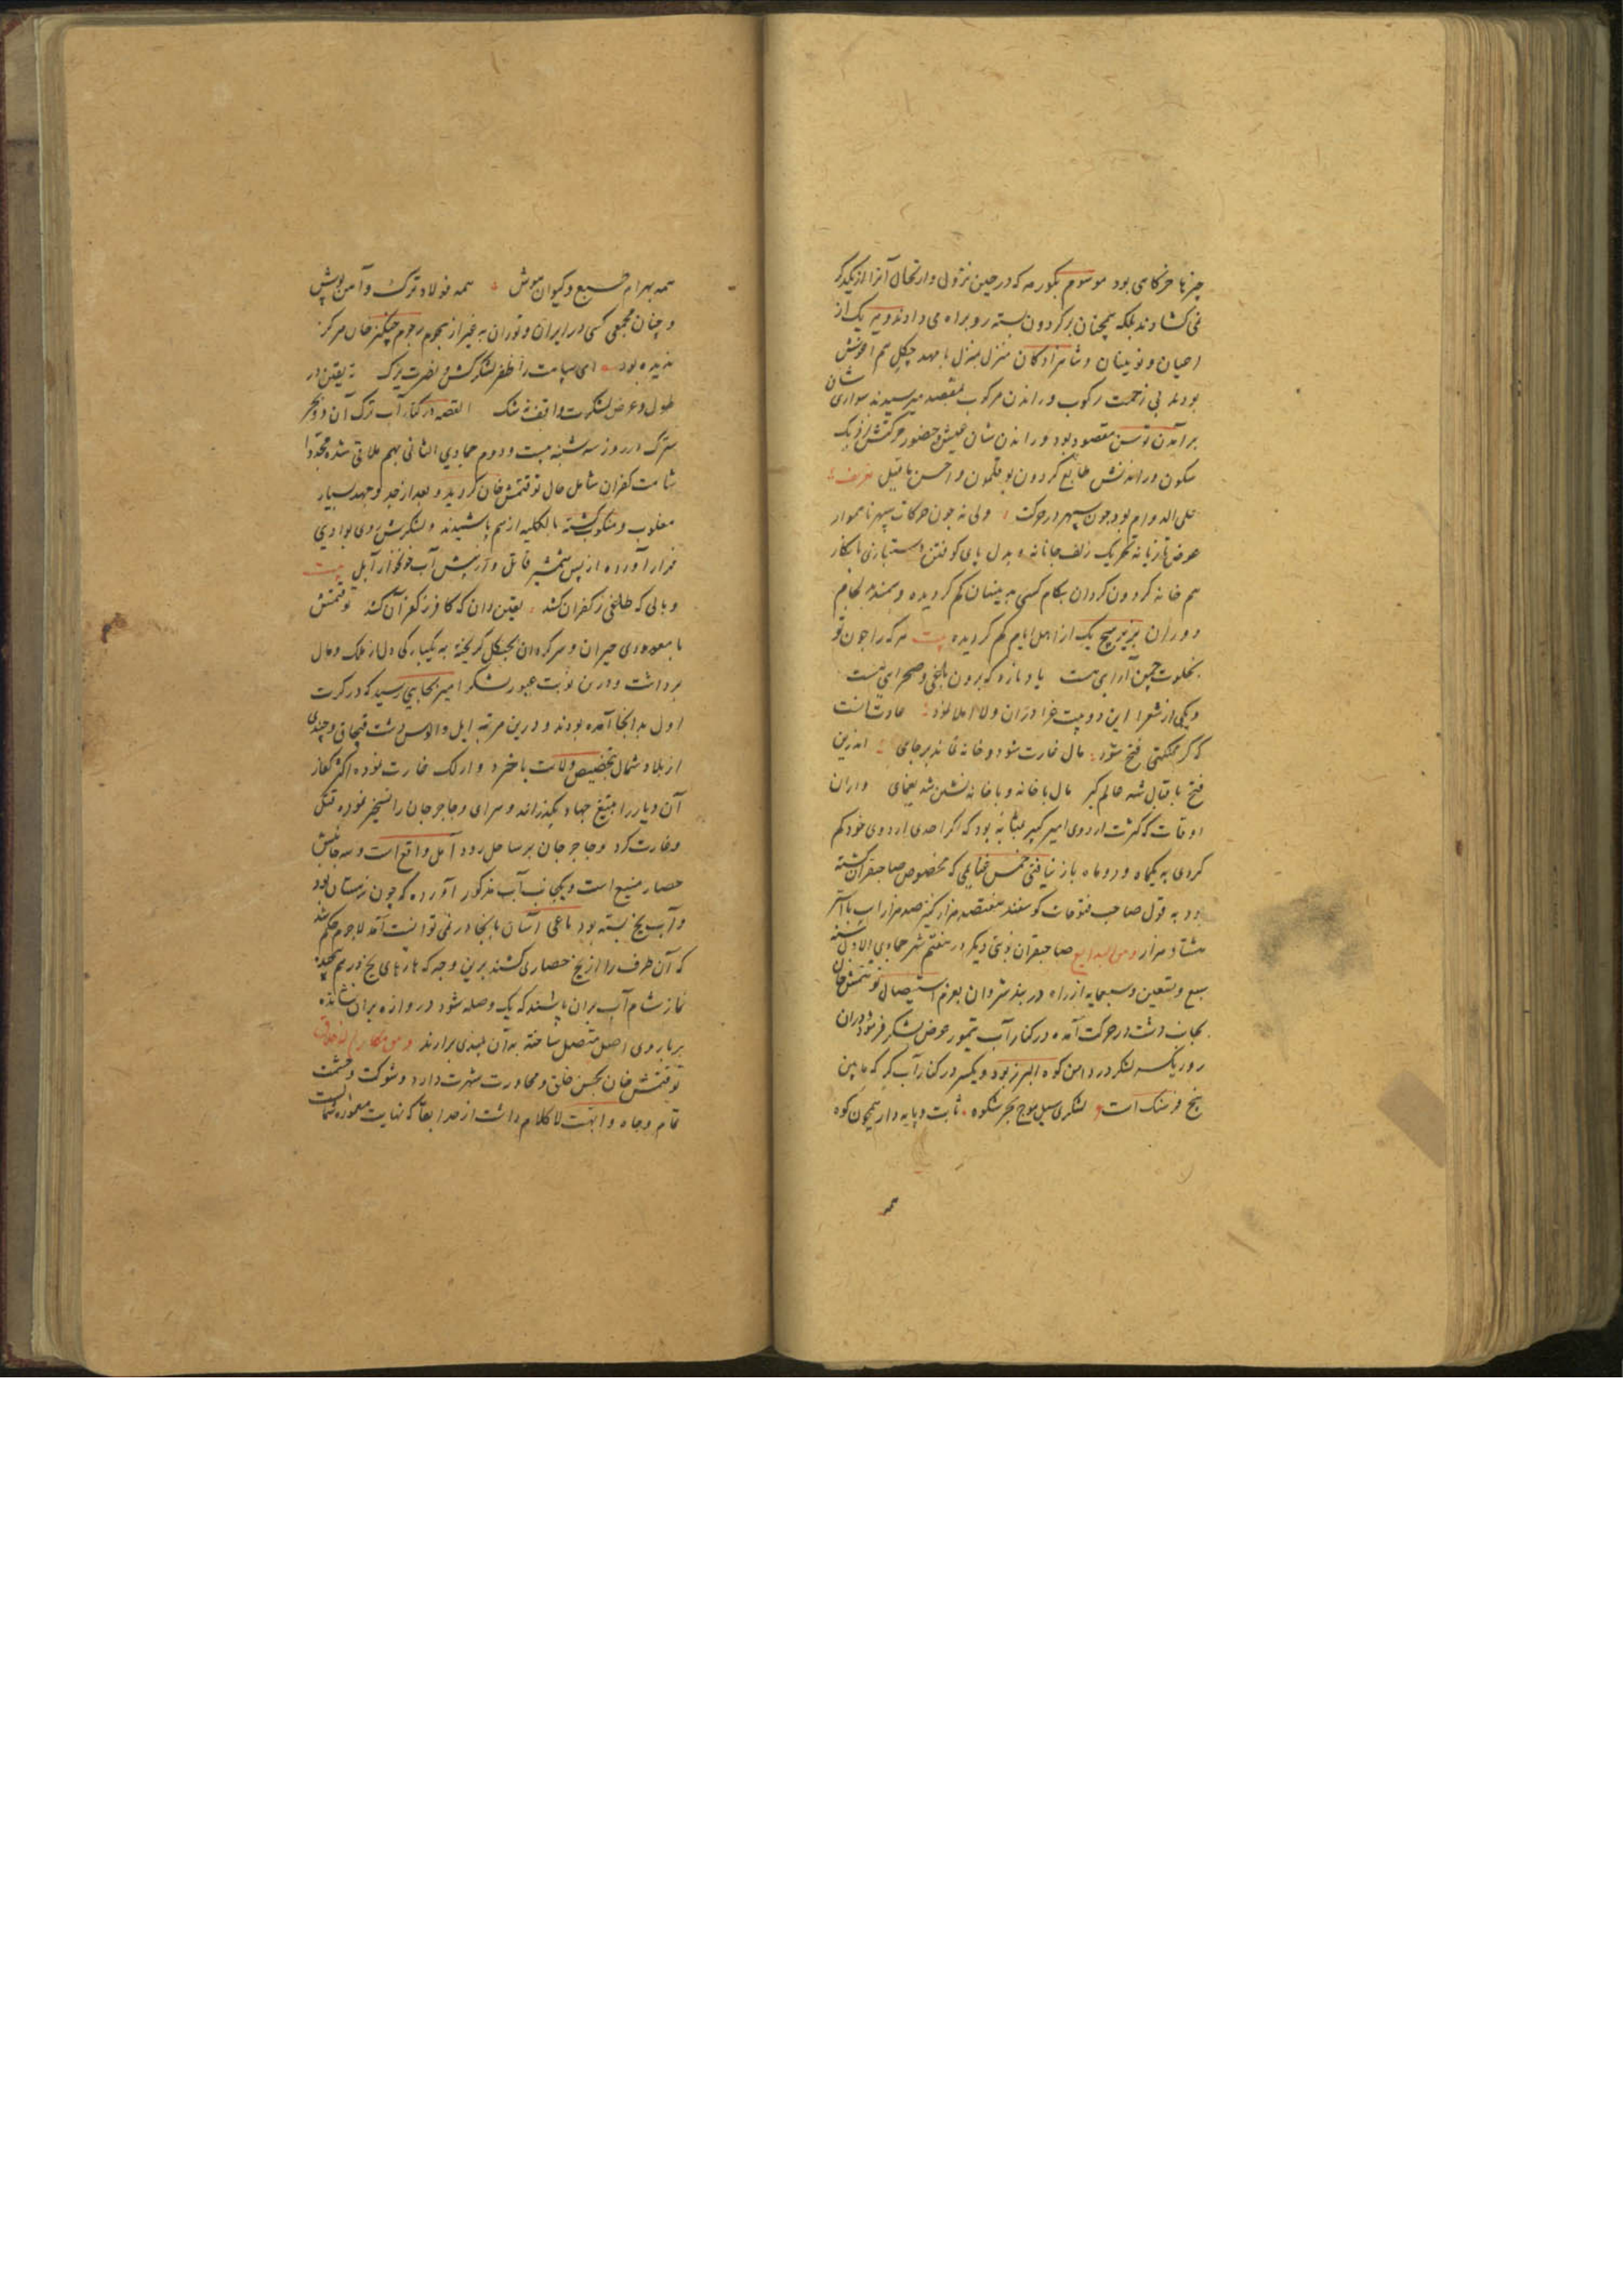 چیزها خرگاهی بود موسوم بکورمه که در حین نزول و ارتحال آنرا از یکدیگر
نمی کشادند بلکه همچنان بر گردون بسته رو براه می دادند و هر یک از
اعیان و نوینان و شاهزادکان منزل بمنزل با مهد چکل هم اغوش
بودند بی زحمت رکوب و راندن مرکوب بمقصد میرسیدند سواری شان
برآمدن توسن مقصود بود و راندن شان عیش و حضور حرکتش نزدیک
سکون و راندنش طایع گردون بوقلمون و احسن ما قیل
علی الدوام بود چون سپهر در حرکت ولی نه چون حرکات سپهر ناهموار
عوض تازیانه تحریک زلف جانانه و بدل پای کوفتن دستبازی با نکار
هم خانه گردون گردان بکام کسی بدینسان کم گردیده و سمند بد لجام
دوران بزیر هیچ یک از اهل ایام کم گردیده بیت هر که را چون تو
بخلوت چمن آرایی هست یاد نارد که برون باغی و صحرایی هست
و یکی از شعرا این دو بیت غرا در آن ولا املا نمود عادت آنست
که گر مملکتی فتح شود مال غارت شود و خانه نماند بر جای اندرین
فتح باقبال شه عالم گیر مال با خانه و با خانه نشین شد یغمای و اران
اوقات کثرت اردوی امیر کبیر بمثابه بود که اگر احدی اردوی خود کم
کردی به یکماه و دو ماه باز نیافتی خمس غنایمی که مخصوص صاحبقران گشته
بود به قول صاحب فتوحات گوسفند هفتصد هزار کنیز صد هزار اسب با استر
هشتاد هزار و من البدایع صاحبقران نوبتی دیگر در هفتم شهر جمادی الاول سنه
سبع و تسعین و سبعمایه از راه دربند شروان بعزم استیصال توقتمش خان
بجانب دشت در حرکت آمده در کنار آب تیمور عرض لشکر فرمود دران
روز یکسر لشکر در دامن کوه البرز بود و یکسر در کنار آب کر که مابین
پنج فرسنک است لشکری سیل موج بحر شکوه ثابت و پایه دار همچون کوه
همه
همه بهرام طبع و کیوان هوش همه فولاد ترک و آهن پوش
و چنان مجمعی کسی در ایران و توران به غیر از هجوم رجوم چنکیز خان هرگز
ندیده بود ای سپاهت را ظفر لشکر کش و نصرت یزک نه یقین در
طول و عرض لشکرت واقف نه شک القصه در کنار آب ترک آن دو بحر
سترک در روز سه شنبه بیست و دوم جمادی الثانی بهم ملاقی شده مجددا
شامت کفران شامل حال توقتمش خان گردید و بعد از جد و جهد بسیار
مغلوب و منکوب گشته بالکلیه از هم پاشیدند و لشکرش روی بوادی
فرار آورده از پس شمشیر قاتل و از پیش آب خونخوار آیل بیت
وبالی که طاغی ز کفران کشد یقین دان که کافر ز کفر آن کشد توقتمش
با معدودی حیران و سرگردان بجنگل گریخته به یکبارگی دل از ملک و مال
برداشت و درین نوبت عبور لشکر امیر بجایی رسید که در کرت
اول بدانجا آمده بودند و درین مرتبه ایل و الوس دشت قبچاق و چندی
از بلاد شمال بتخصیص ولایت باخره و ارلک غارت نموده اکثر کفار
آن دیار را بتیغ جهاد بگذراند و سرای و حاجی ترخان را تسخیر نموده قتل
و غارت کرد و حاجرجان بر ساحل رود آمل واقع است و سه جانبش
حصار منیع است و یکجانب آب مذکور آورده که چون زمستان بود
و آب یخ بسته بود یاغی آسان بانجا در نمی توانست آمد لاجرم حکم شد
که آن طرف را از یخ حصاری کشند برین وجه که پارهای یخ در هم چیده
نماز شام آب بران پاشند که یک وصله شود دروازه بران نشانده
بر باروی اصل متصل ساخته به آن بلندی برآرند و من مکارم اخلاقه
توقتمش خان بحسن خلق و محاورت شهرت دارد و شوکت و حشمت
تمام و جاه و ابهت لا کلام داشت از صد ابعا که نهایت معموره شمالست